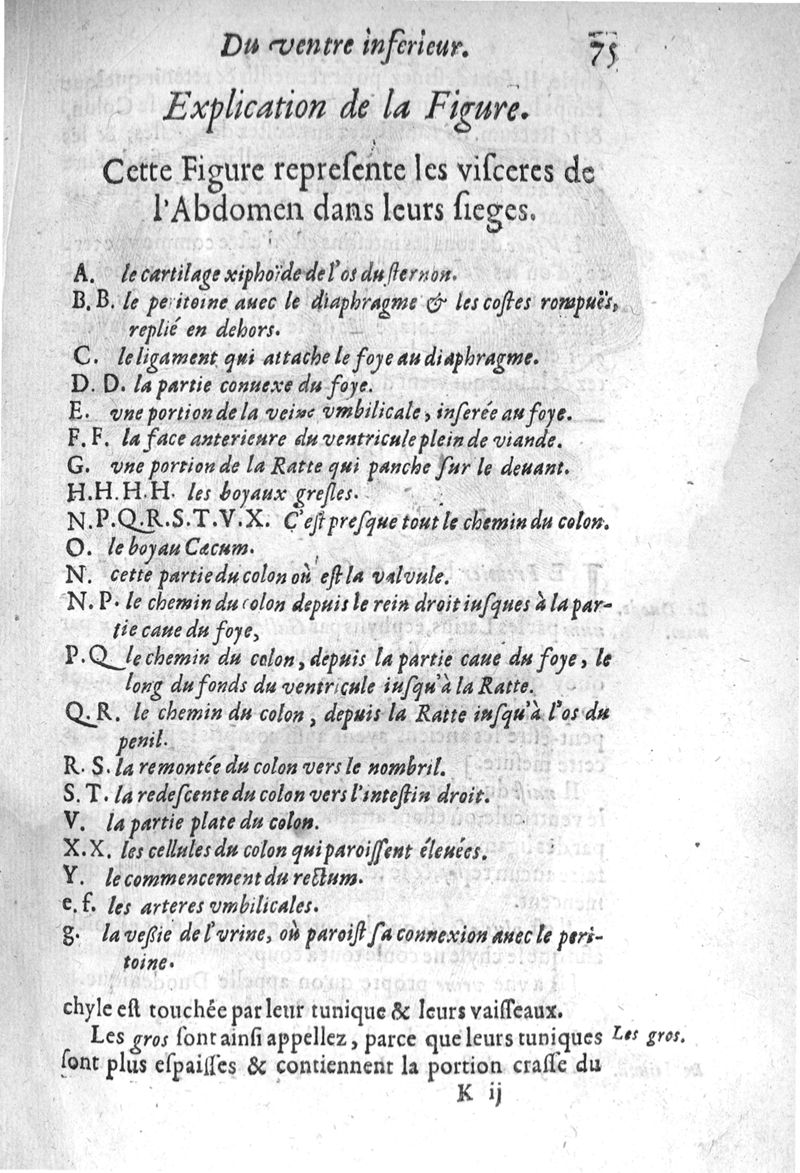 Du ventre inferieur. 75
Explication de la Figure.
Cette Figure repreſente les viſceres de
l'Abdomen dans leurs ſieges.
A. le cartilage xiphoïde de l'os du ſternon.
B. B. le peritoine auec le diaphragme & les coſtes rompuës,
replié en dehors.
C. le ligament qui attache le foye au diaphragme.
D. D. la partie conuexe du foye.
E. vne portion de la veine vmbilicale, inſerée au foye.
F. F. la face anterieure du ventricule plein de viande.
G. vne portion de la Ratte qui panche ſur le deuant.
H. H. H. H. les boyaux greſles.
N. P. Q. R. S. T. V. X. C'eſt preſque tout le chemin du colon.
O. le boyau Cæcum.
N. cette partie du colon où eſt la valvule.
N. P. le chemin du colon depuis le rein droit iuſques à la par-
tie caue du foye,
P. Q le chemin du colon, depuis la partie caue du foye, le
long du fonds du ventricule iuſqu'à la Ratte.
Q. R. le chemin du colon, depuis la Ratte iuſqu'à l'os du
penil.
R. S. la remontée du colon vers le nombril.
S. T. la redeſcente du colon vers l'inteſtin droit.
V. la partie plate du colon.
X. X. les cellules du colon qui paroiſſent éleuées.
Y. le commencement du rectum.
e. f. les arteres vmbilicales.
g. la veßie de l'vrine, où paroiſt ſa connexion auec le peri-
toine.
chyle eſt touchée par leur tunique & leurs vaiſſeaux.
Les gros ſont ainſi appellez, parce que leurs tuniques Les gros.
ſont plus eſpaiſſes & contiennent la portion craſſe du
K ij